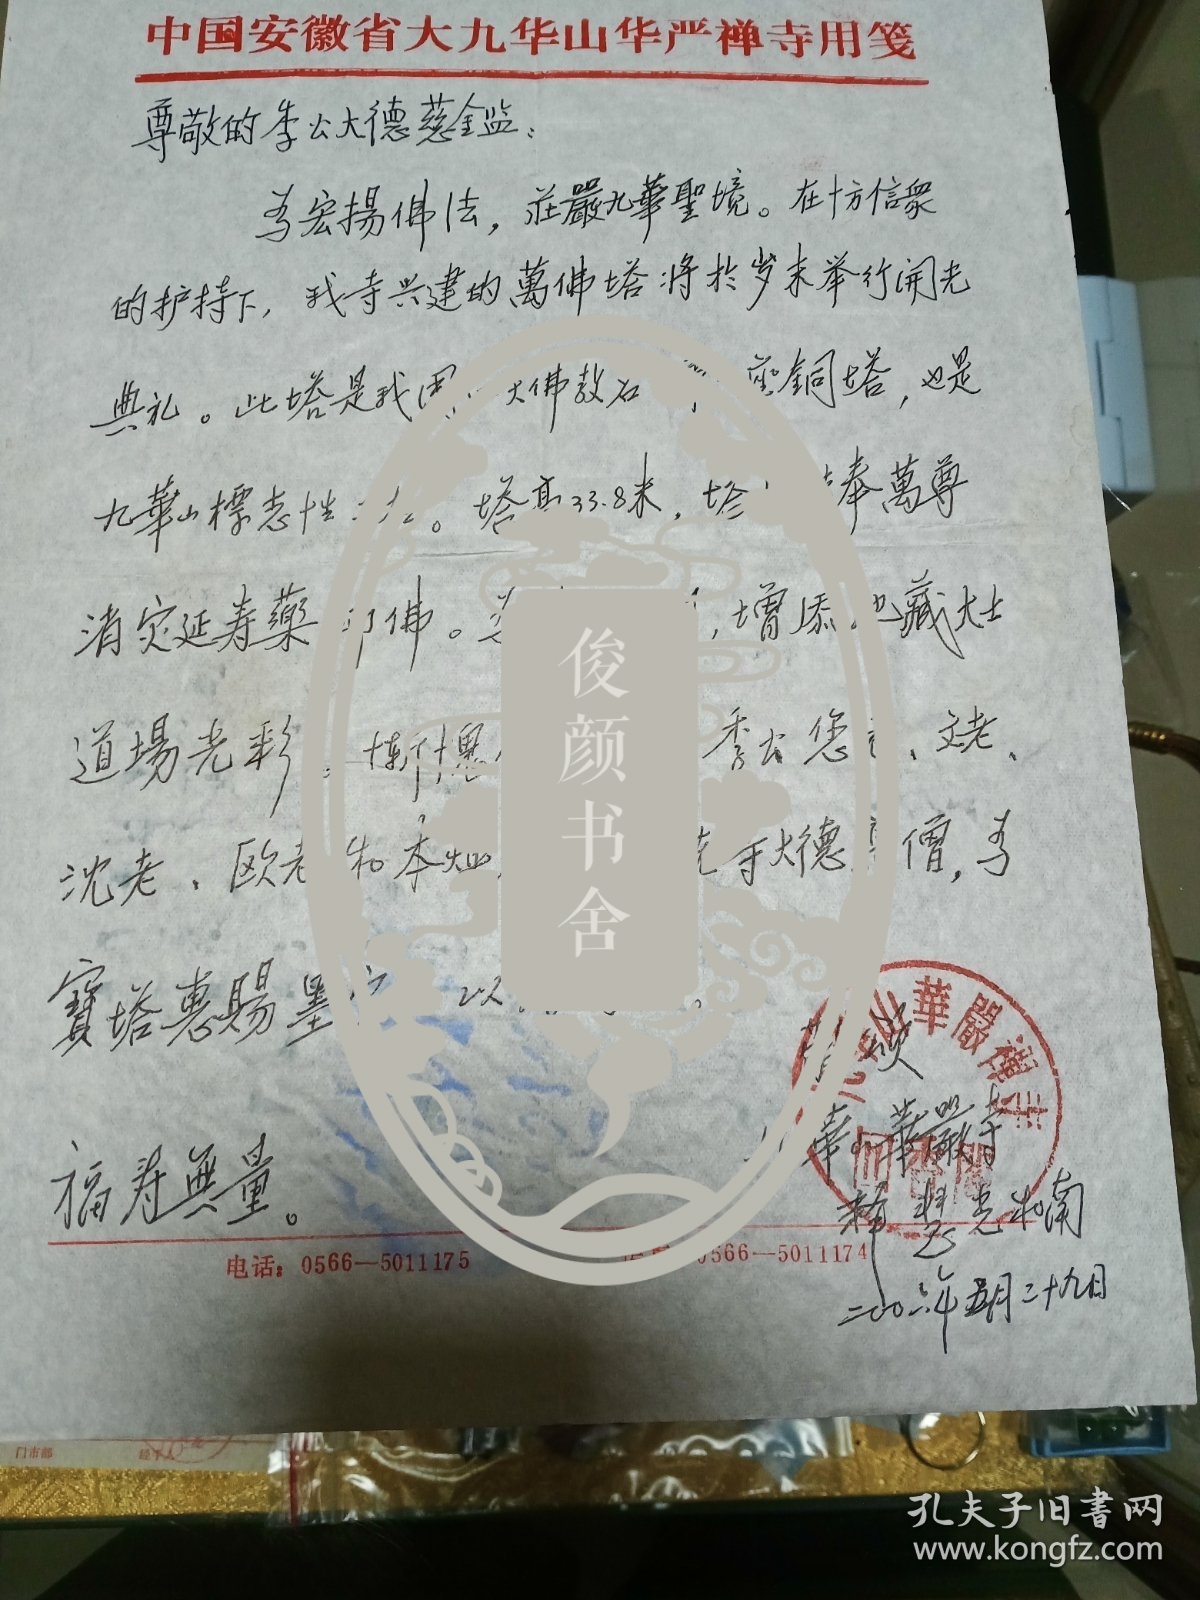 中国安徽省大九华山华严禅寺用笺
尊敬的李公大德慈鉴：
为宏揚佛法，莊嚴九華聖境。在十方信衆
的护持下，我寺兴建的萬佛塔将於岁末举行開光
典礼。此塔是我国 大佛教名 座銅塔，也是
九華山標志性 。塔高33.8米，塔 奉萬尊
消灾延寿藥 佛。 ，增添地藏大士
道場光彩。 李公您 、文老、
沈老、欧老和本 大德 僧，为
寶塔惠賜墨 以 。
福寿無量。
華嚴禪寺
九華山華嚴寺
釋慧光和南
二00六年五月二十九日
电话：0566—5011175
0566—5011174
俊颜书舍
门市部
孔夫子旧书网
www.kongfz.com